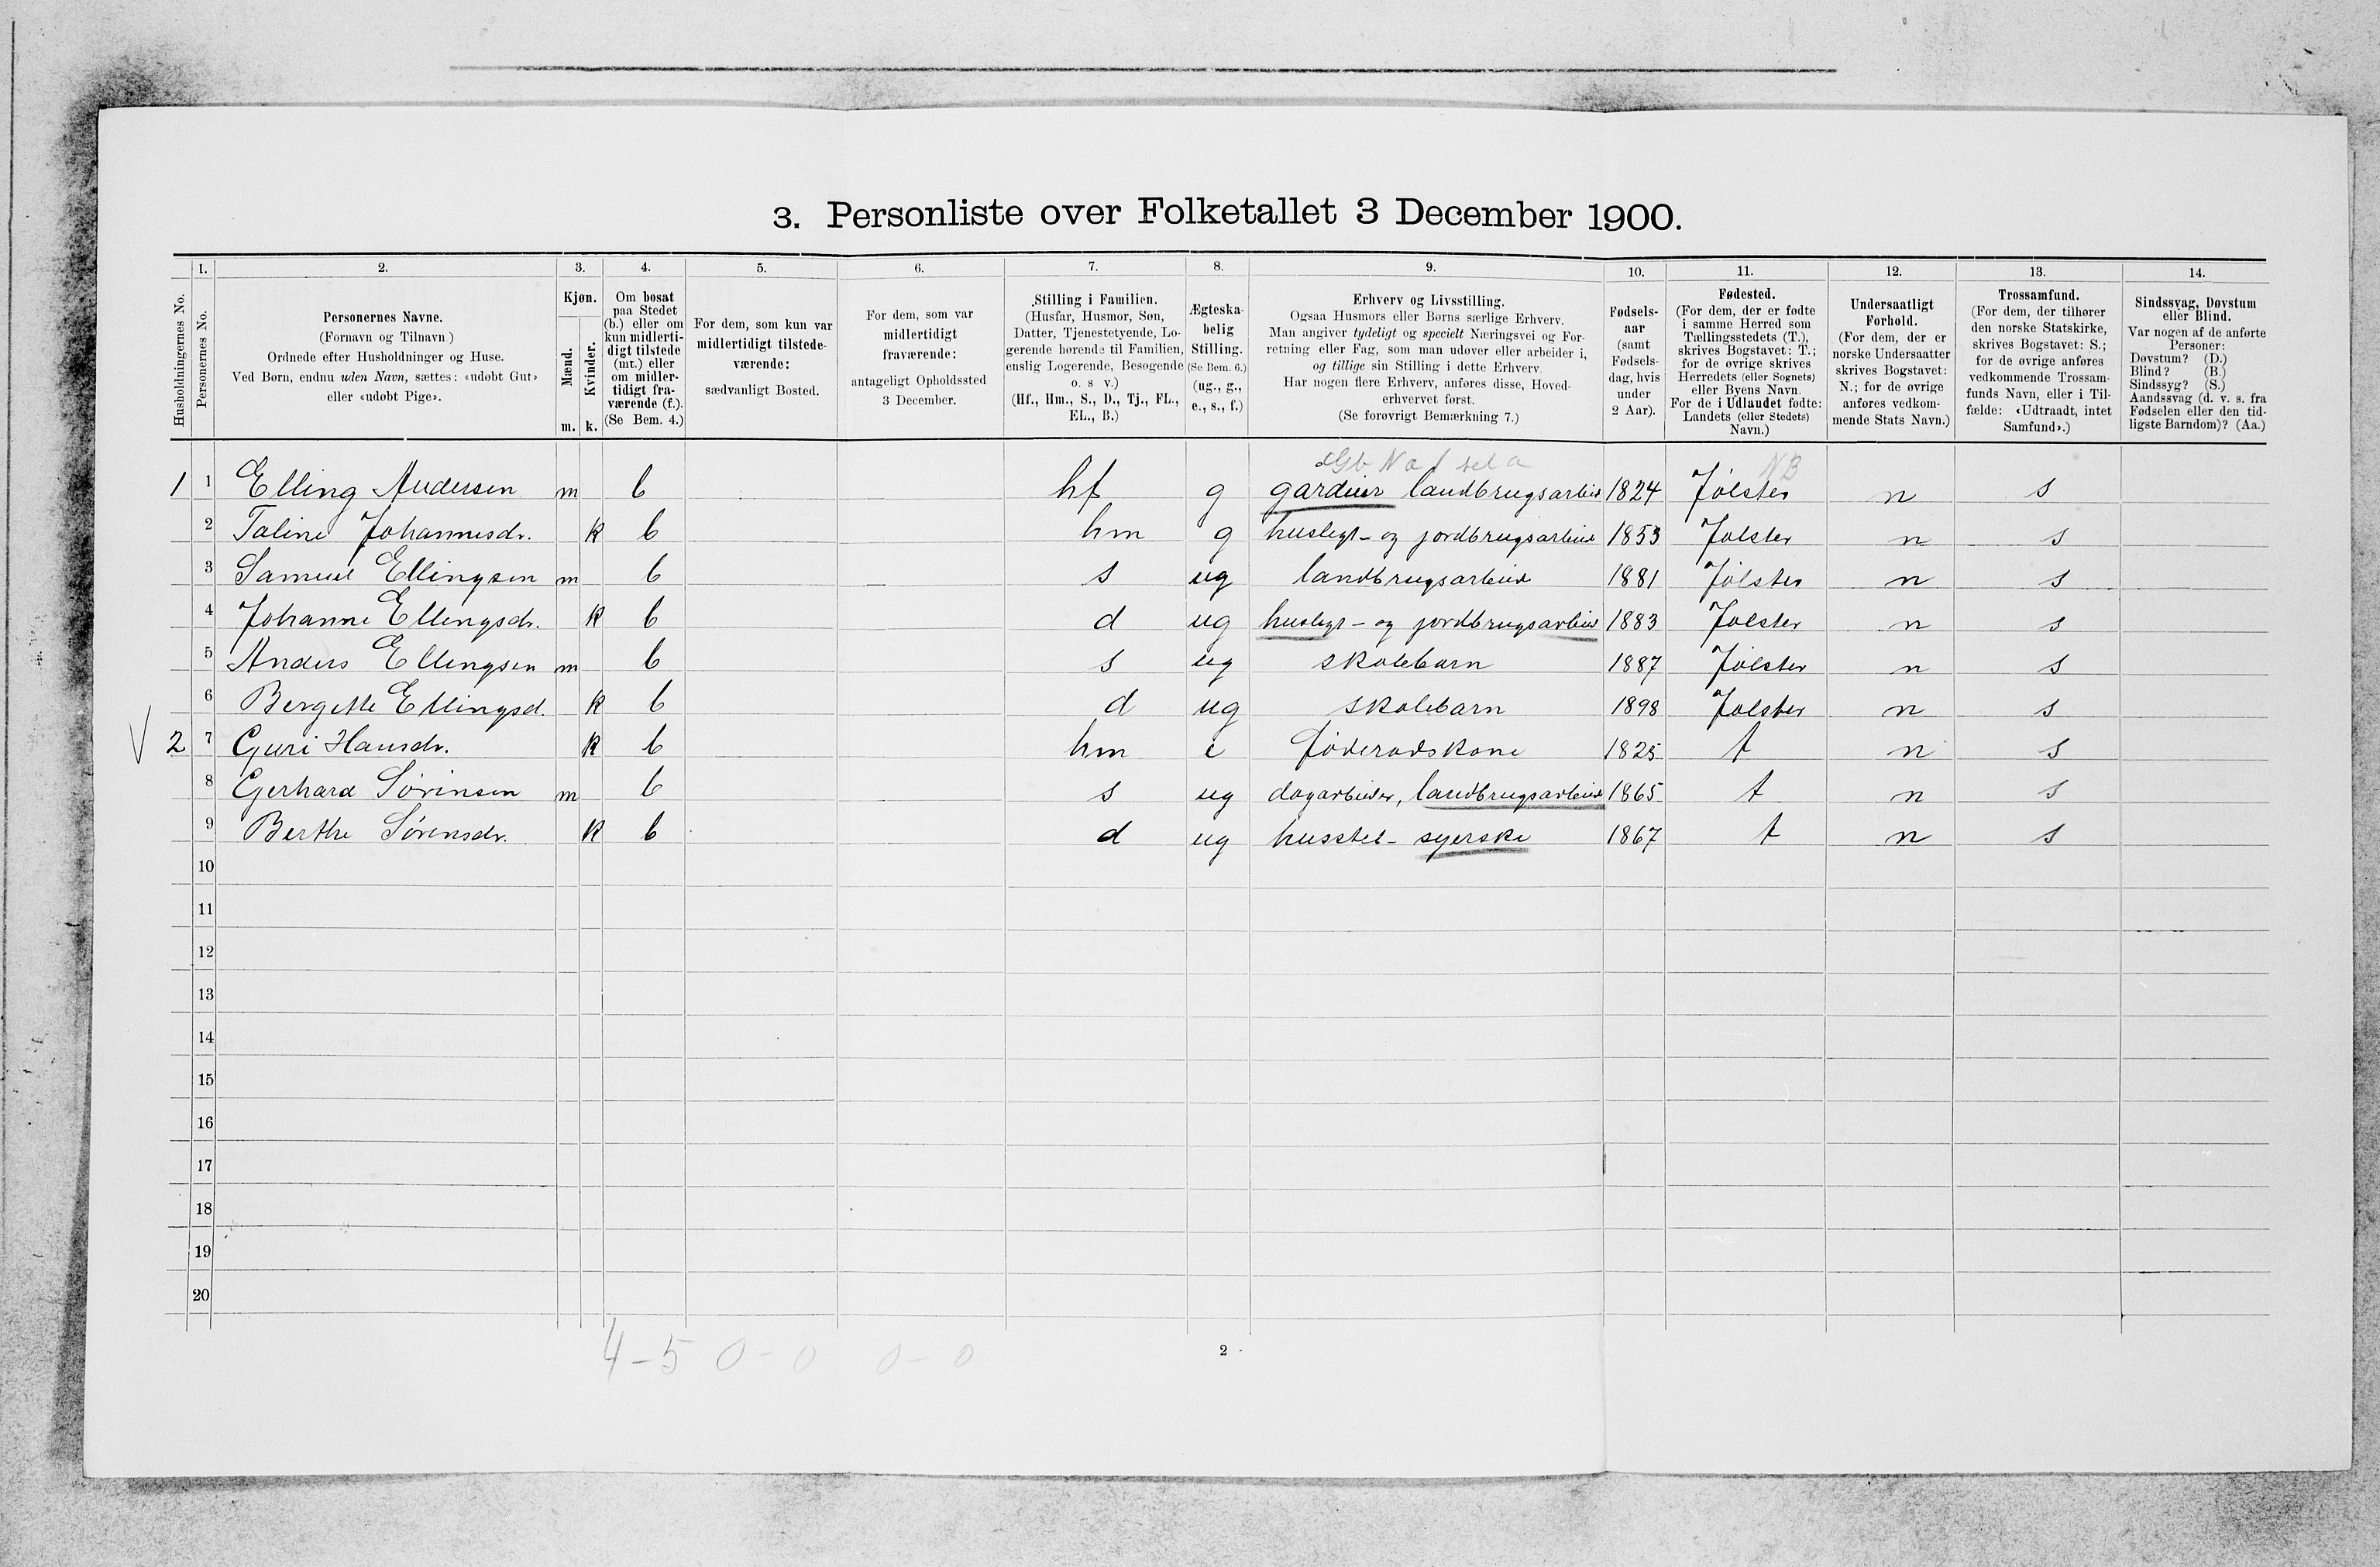 3. Personliste over Folketallet 3 December 1900.
1. 2. 3. 4. 5. 6. 7. 8. 9. 10. 11. 12. 13. 14.
Husholdningernes No.
Personernes No.
Personernes Navne.
(Fornavn og Tilnavn)
Ordnede efter Husholdninger og Huse.
Ved Børn, endnu uden Navn, sættes: «udøbt Gut»
eller «udøbt Pige».
Kjøn.
Mænd.
Kvinder.
m. k.
Om bosat
paa Stedet
(b.) eller om
kun midlerti-
digt tilstede
(mt.) eller
om midler-
tidigt fra-
værende (f.).
(Se Bem. 4.)
For dem, som kun var
midlertidigt tilstede-
værende:
sædvanligt Bosted.
For dem, som var
midlertidigt
fraværende:
antageligt Opholdssted
3 December.
Stilling i Familien.
(Husfar, Husmor, Søn,
Datter, Tjenestetyende, Lo-
gerende hørende til Familien,
enslig Logerende, Besøgende
o. s v.)
(Hf., Hm., S., D., Tj., FL.,
EL., B.)
Ægteska-
belig
Stilling.
(Se Bem. 6.)
(ug., g.,
e., s., f.)
Erhverv og Livsstilling.
Ogsaa Husmors eller Børns særlige Erhverv.
Man angiver tydeligt og specielt Næringsvei og For-
retning eller Fag, som man udøver eller arbeider i,
og tillige sin Stilling i dette Erhverv.
Har nogen flere Erhverv, anføres disse, Hoved-
erhvervet først.
(Se forøvrigt Bemærkning 7.)
Fødsels-
aar
(samt
Fødsels-
dag, hvis
under
2 Aar).
Fødested.
(For dem, der er fødte
i samme Herred som
Tællingsstedets (T.),
skrives Bogstavet: T.;
for de øvrige skrives
Herredets (eller Sognets)
eller Byens Navn.
For de i Udlaudet fødte:
Landets (eller Stedets)
Navn.)
Undersaatligt
Forhold.
(For dem, der er
norske Undersaatter
skrives Bogstavet:
N.; for de øvrige
anføres vedkom-
mende Stats Navn.)
Trossamfund.
(For dem, der tilhører
den norske Statskirke,
skrives Bogstavet: S.;
for de øvrige anføres
vedkommende Trossam-
funds Navn, eller i Til-
fælde: «Udtraadt, intet
Samfund».)
Sindssvag, Døvstum
eller Blind.
Var nogen af de anførte
Personer:
Døvstum? (D.)
Blind? (B.)
Sindssyg? (S.)
Aandssvag (d. v. s. fra
Fødselen eller den tid-
ligste Barndom)? (Aa.)
NB
1 1 Elling Andersen m b hf g gardier landbrugsarbeid 1824 Jølster n s
2 Taline Johannesdr. k b hm g huslegt- og jordbrugsarbeid 1853 Jølster n s
3 Samuel Ellingsen m b s ug landbrugsarbeid 1881 Jølster n s
4 Johanne Ellingsdr. k b d ug huslegt- og jordbrugsarbeid 1883 Jølster n s
5 Anders Ellingsen m b s ug skolebarn 1887 Jølster n s
6 Bergitte Ellingsd. k b d ug skolebarn 1898 Jølster n s
V 2 7 Guri Hansdr. k b hm e føderadskone 1825 t n s
8 Gerhard Sørensen m b s ug dagarbeider, landbrugsarbeid 1865 t n s
9 Berthe Sørensdr. k b d ug husstel- syerske 1867 t n s
10
11
12
13
14
15
16
17
18
19
20
4-5 0-0 0-0
2